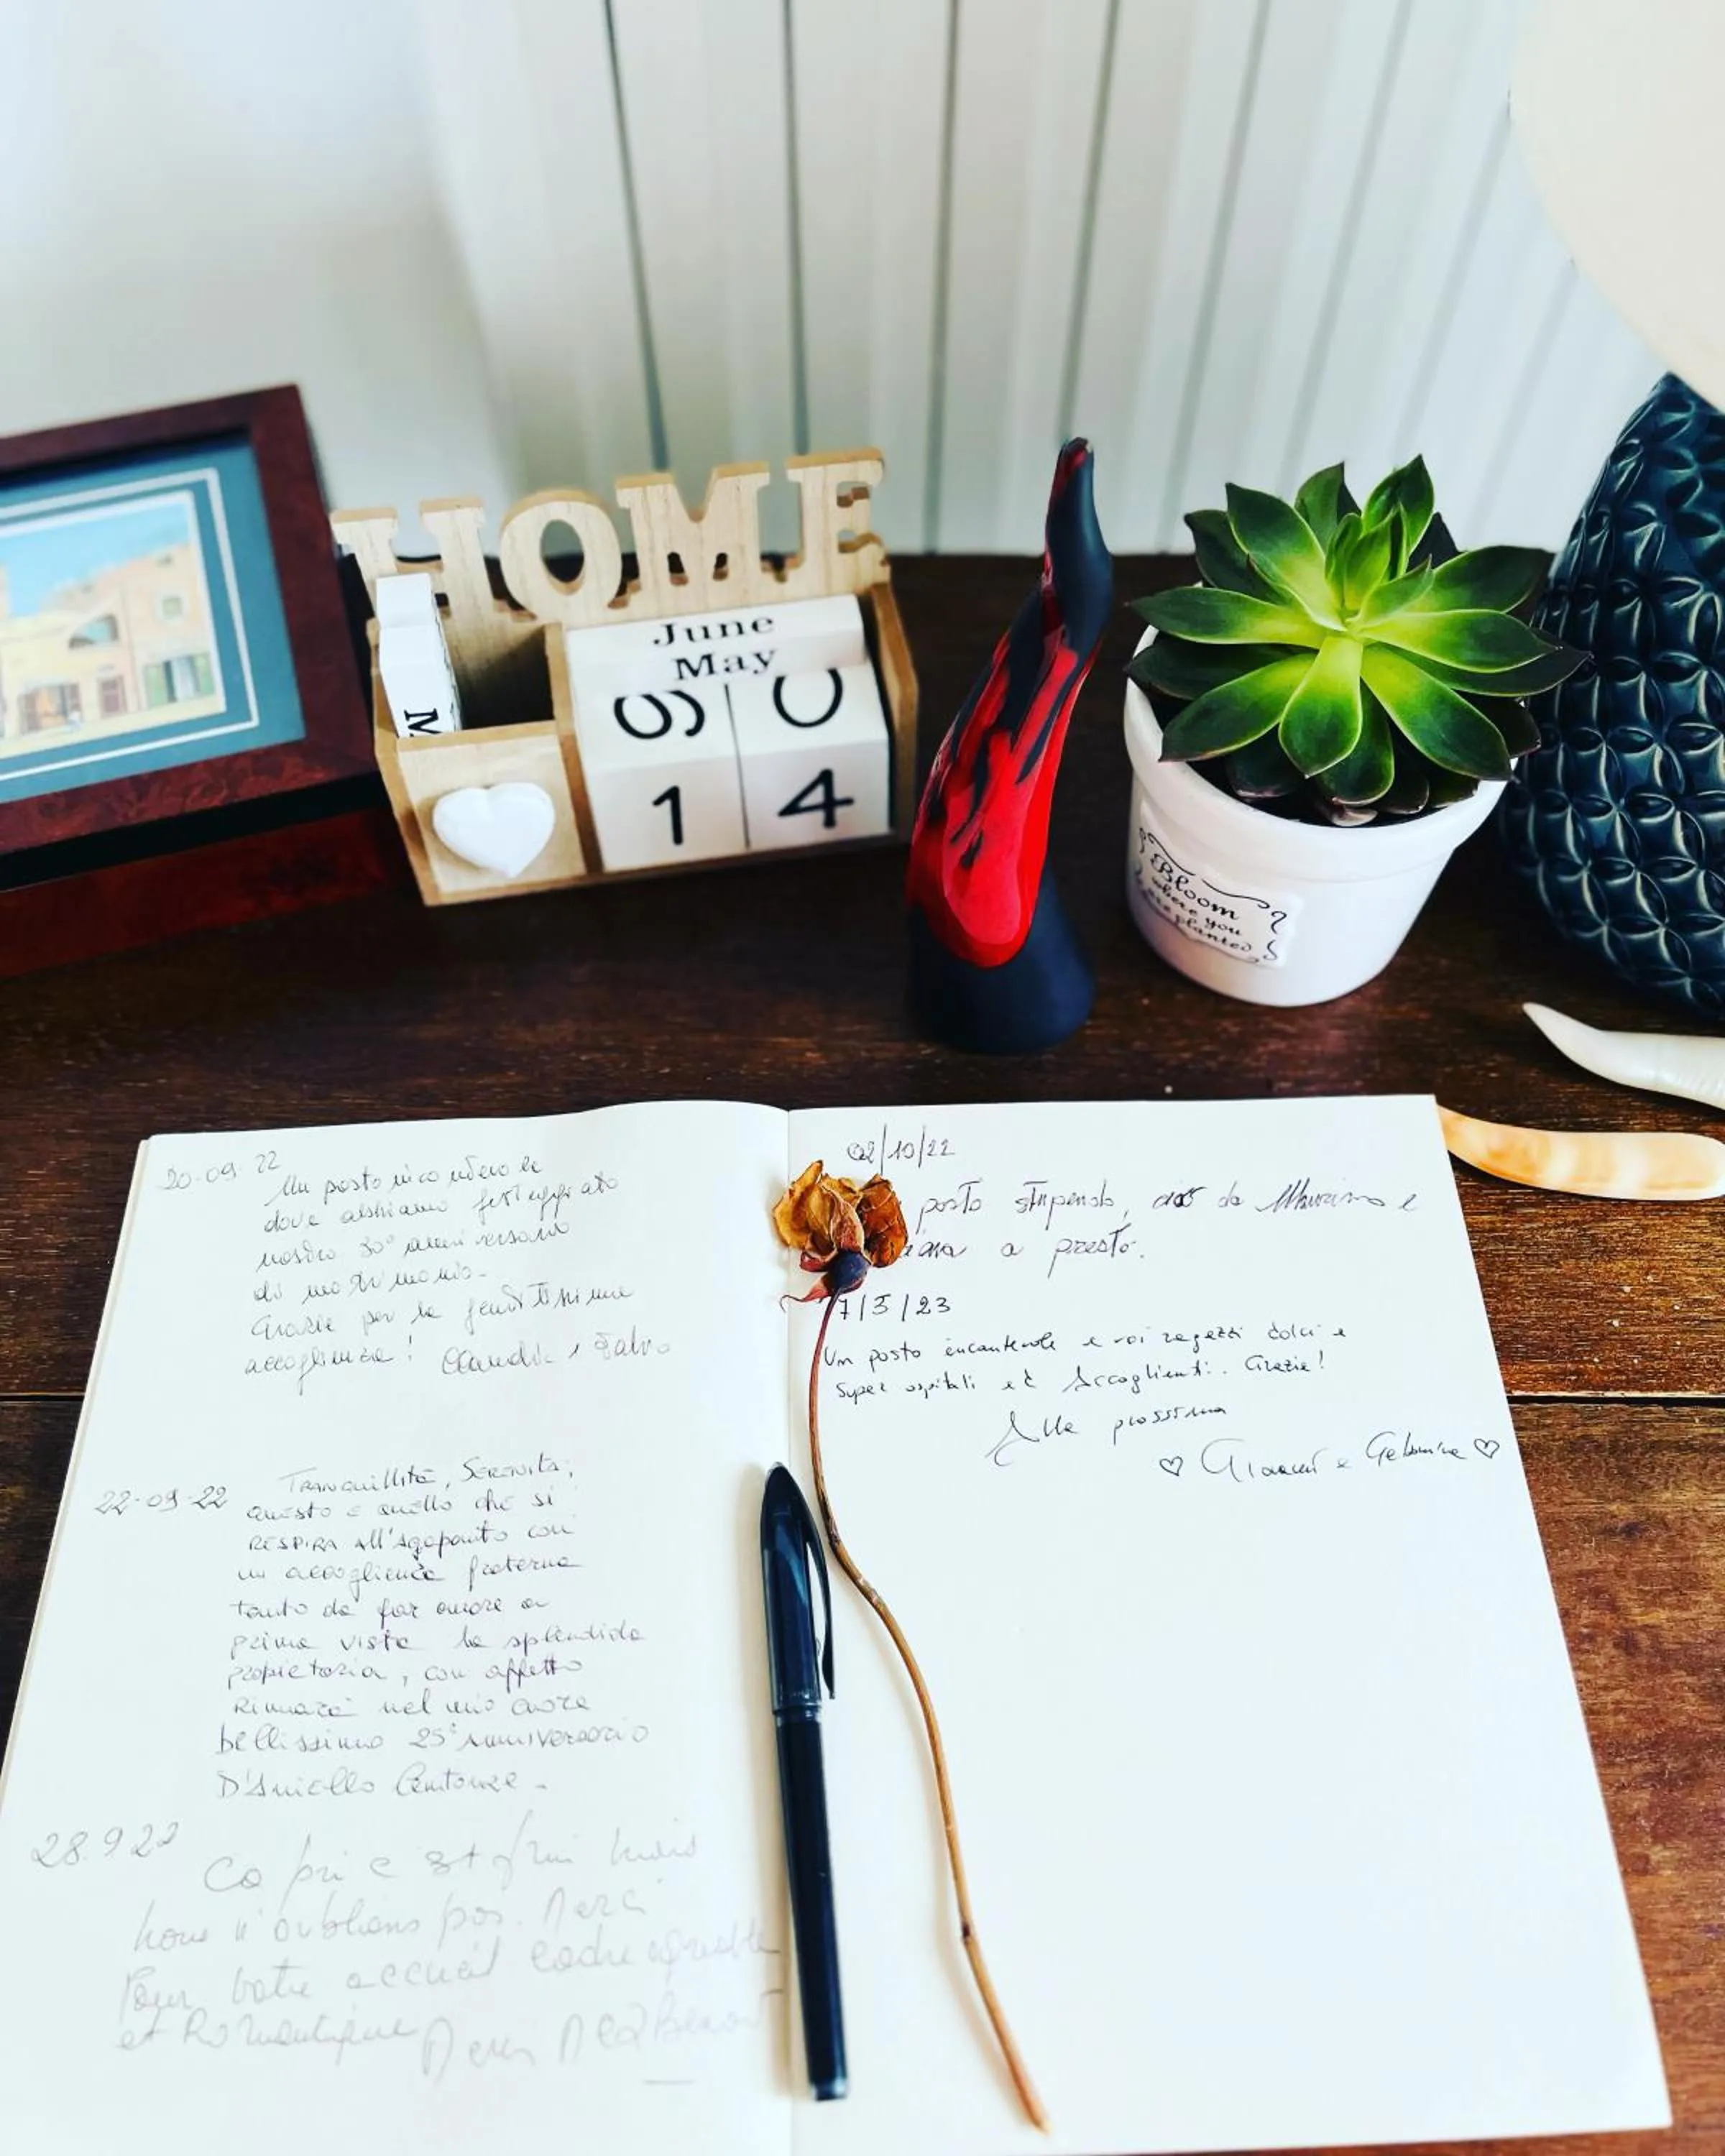 HOME
June
May
M
1 4
Bloom
where you
are planted
20-09-22
Un posto
dove abbiamo festeggiato
nostro 30° anniversario
di matrimonio.
Grazie per la gentilissima
accoglienza! Claudia e Salvo
22-09-22
TRANquillità, SERENità,
questo è quello che si
RESPIRA All'Agapanto con
un accoglienza fraterna
tanto da far amore a
prima vista la splendida
propietaria, con affetto
Rimarrà nel mio cuore
bellissimo 25° ANNIVERSARIO
D'Aniello
28.9 22
Capri c'est fini mais
nous n'oublions pas. Merci
Pour votre accueil cadre agréable
et Romantique Merci
02/10/22
posto stupendo, ciao da e
a presto.
7/5/23
Un posto incantevole e voi ragazzi dolci e
super ospitali ed Accoglienti.. Grazie!
Alla prossima
♡ Gianni e ♡